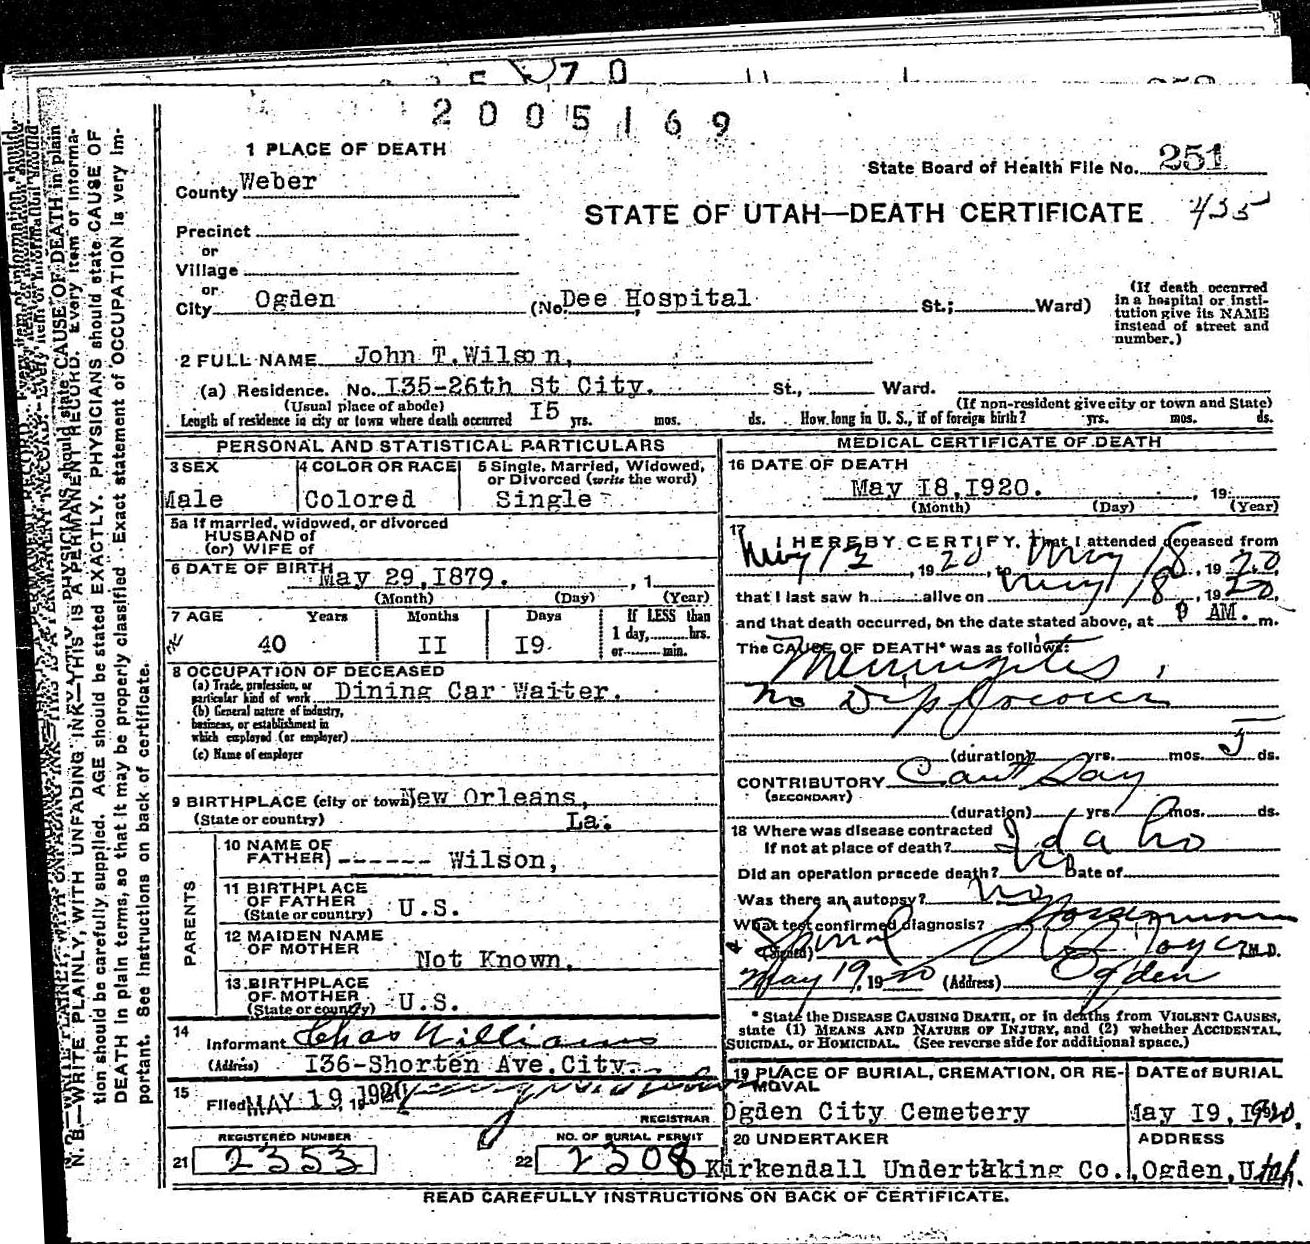 2005169
1 PLACE OF DEATH
State Board of Health File No. 251
County Weber
STATE OF UTAH—DEATH CERTIFICATE 435
Precinct
or
Village
or
City Ogden (No. Dee Hospital St.; Ward)
(If death occurred in a hospital or institution give its NAME instead of street and number.)
2 FULL NAME John T. Wilson,
(a) Residence. No. I35-26th St City. St., Ward.
(Usual place of abode) (If non-resident give city or town and State)
Length of residence in city or town where death occurred I5 yrs. mos. ds. How long in U. S., if of foreign birth? yrs. mos. ds.
PERSONAL AND STATISTICAL PARTICULARS
3 SEX
Male
4 COLOR OR RACE
Colored
5 Single, Married, Widowed, or Divorced (write the word)
Single
5a If married, widowed, or divorced
HUSBAND of
(or) WIFE of
6 DATE OF BIRTH May 29, I879. , 1
(Month) (Day) (Year)
7 AGE Years Months Days If LESS than
40 II I9. 1 day, hrs.
or min.
8 OCCUPATION OF DECEASED
(a) Trade, profession, or particular kind of work Dining Car Waiter.
(b) General nature of industry, business, or establishment in which employed (or employer)
(c) Name of employer
9 BIRTHPLACE (city or town) New Orleans,
(State or country) La.
PARENTS
10 NAME OF FATHER) ------ Wilson,
11 BIRTHPLACE OF FATHER (State or country) U.S.
12 MAIDEN NAME OF MOTHER Not Known.
13 BIRTHPLACE OF MOTHER (State or country) U.S.
14 Informant Chas Williams
(Address) I36-Shorten Ave. City.
15 Filed MAY 19 1920
REGISTRAR
REGISTERED NUMBER
21 2353
NO. OF BURIAL PERMIT
22 2308
MEDICAL CERTIFICATE OF DEATH
16 DATE OF DEATH
May I8, I920. , 19
(Month) (Day) (Year)
17 I HEREBY CERTIFY, That I attended deceased from
May 13, 1920, to May 18, 1920
that I last saw h alive on May 18, 1920.
and that death occurred, on the date stated above, at AM. m.
The CAUSE OF DEATH* was as follows:
Meningitis,
no Diplococci
(duration) yrs. mos. 5 ds.
CONTRIBUTORY Cant Say
(SECONDARY)
(duration) yrs. mos. ds.
18 Where was disease contracted
If not at place of death? Idaho
Did an operation precede death? No Date of
Was there an autopsy? No
What test confirmed diagnosis?
& Spinal
(Signed) M.D.
May 19, 1920 (Address) Ogden
* State the DISEASE CAUSING DEATH, or in deaths from VIOLENT CAUSES,
state (1) MEANS AND NATURE OF INJURY, and (2) whether ACCIDENTAL,
SUICIDAL, or HOMICIDAL. (See reverse side for additional space.)
19 PLACE OF BURIAL, CREMATION, OR REMOVAL
Ogden City Cemetery
DATE of BURIAL
May I9, I920.
20 UNDERTAKER
Kirkendall Undertaking Co.,
ADDRESS
Ogden, Utah.
READ CAREFULLY INSTRUCTIONS ON BACK OF CERTIFICATE.
N. B.—WRITE PLAINLY, WITH UNFADING INK—THIS IS A PERMANENT RECORD. Every item of information should be carefully supplied. AGE should be stated EXACTLY. PHYSICIANS should state CAUSE OF DEATH in plain terms, so that it may be properly classified. Exact statement of OCCUPATION is very important. See instructions on back of certificate.